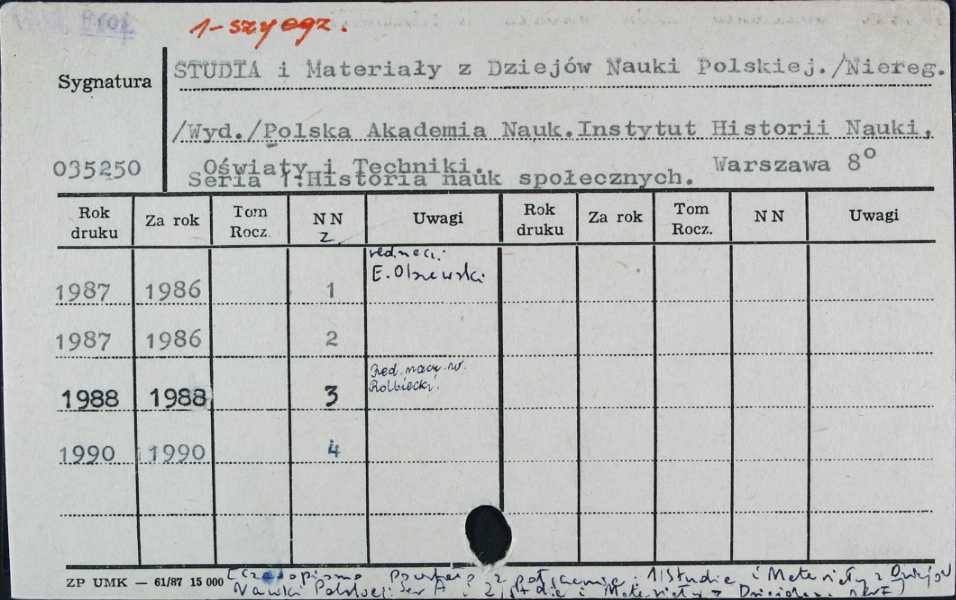 1-szy egz.
Sygnatura
STUDIA i Materiały z Dziejów Nauki Polskiej./Niereg.
/Wyd./Polska Akademia Nauk.Instytut Historii Nauki,
035250
Oświaty i Techniki. Warszawa 8º
Seria 1:Historia nauk społecznych.
Rok druku Za rok Tom Rocz. NN Uwagi Rok druku Za rok Tom Rocz. NN Uwagi
z.
E. Olszewski
1987 1986 1
1987 1986 2
Red. nacz. W.
Rolbiecki
1988 1988 3
1990 1990 4
ZP UMK — 61/87 15 000
[Czasopismo z połączenia: 1/Studia i Materiały z Dziejów
Nauki Polskiej. Ser A i 2/Studia i Materiały z Dziejów